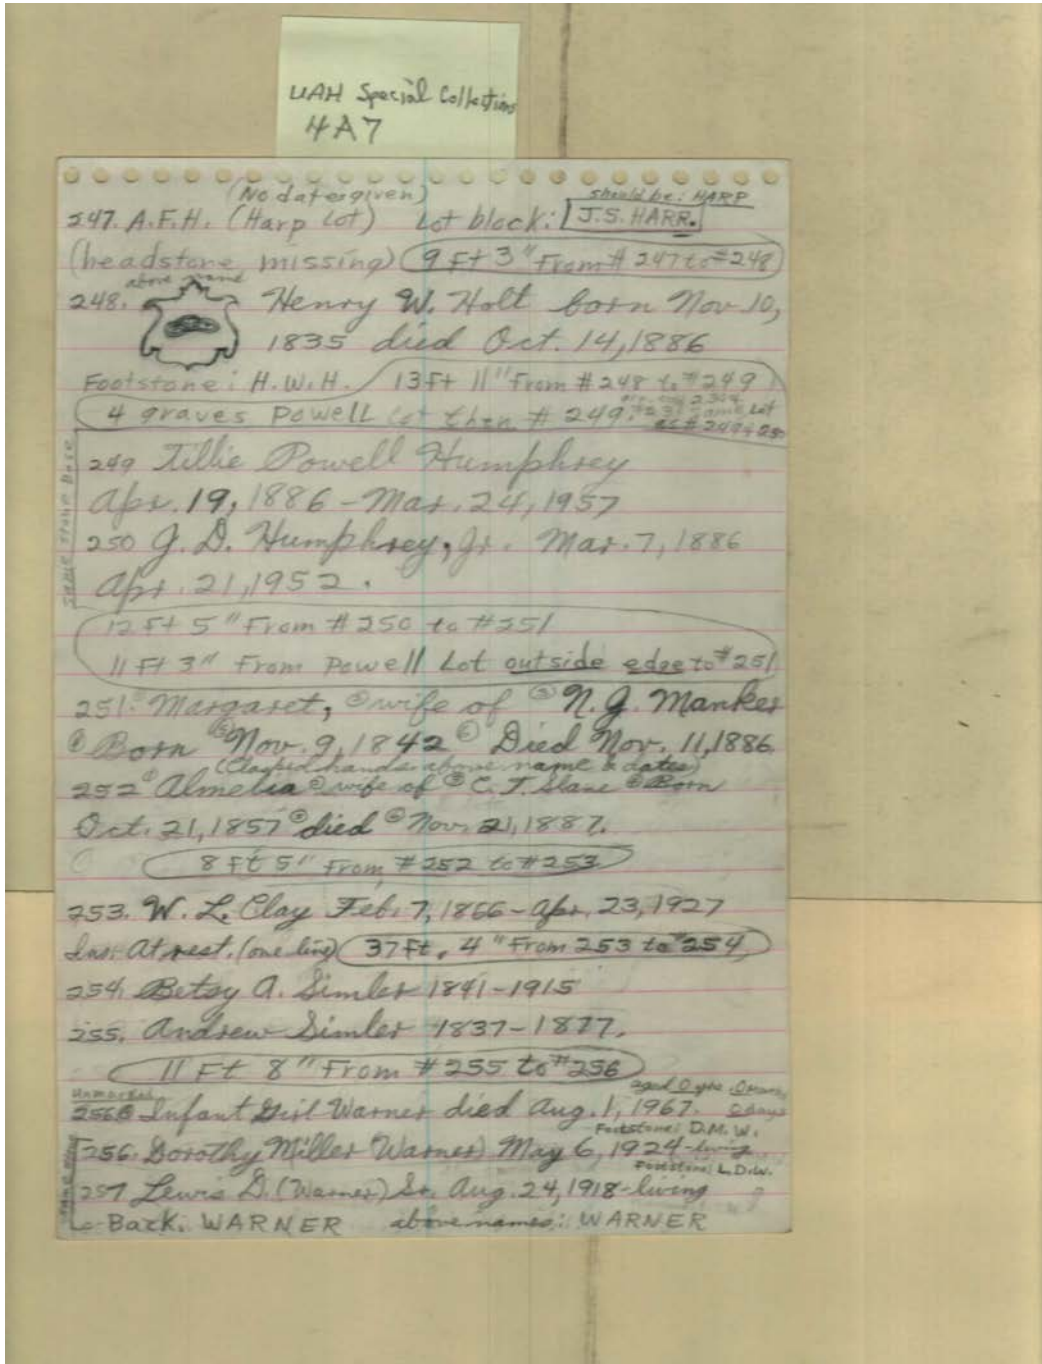 UAH Special Collections
4A7
(No dates given) should be: HARP
247. A.F.H. (Harp Lot) Lot block: J.S. HARR.
(headstone missing) 9 Ft 3" From # 247 to #248
above name
248. Henry W. Holt born Nov. 10,
1835 died Oct. 14, 1886
Footstone: H.W.H. 13 Ft 11" From # 248 to #249
4 graves Powell Lot then # 249.
Same Lot
as # 249 & 250
249 Tillie Powell Humphrey
Apr. 19, 1886 - Mar. 24, 1957
250 J. D. Humphrey, Jr. Mar. 7, 1886
Apr. 21, 1952.
Same Stone Base
12 Ft 5" From # 250 to #251
11 Ft 3" From Powell Lot outside edge to #251
251. ① Margaret, ② wife of ③ N. J. Manker
④ Born ⑤ Nov. 9, 1842 ⑥ Died Nov. 11, 1886
(Clasped hands above name & dates)
252 ① Almetia ② wife of ③ C. T. Slane ④ Born
Oct. 21, 1857 ⑤ died ⑥ Nov. 21, 1887.
8 Ft 5" From #252 to #253
253. W. L. Clay Feb. 7, 1866 - Apr. 23, 1927
Ins: At rest. (one line) 37 Ft. 4" From 253 to #254
254. Betsy A. Simler 1841-1915
255. Andrew Simler 1837-1877.
11 Ft 8" From # 255 to #256
Unmarked aged 0 yrs. 0 mons, 0 days
256B Infant Girl Warner died Aug. 1, 1967.
Footstone: D.M.W.
256. Dorothy Miller (Warner) May 6, 1924 - living
Footstone: L.D.W.
257 Lewis D. (Warner) Sr. Aug. 24, 1918 - living
Back: WARNER above names: WARNER